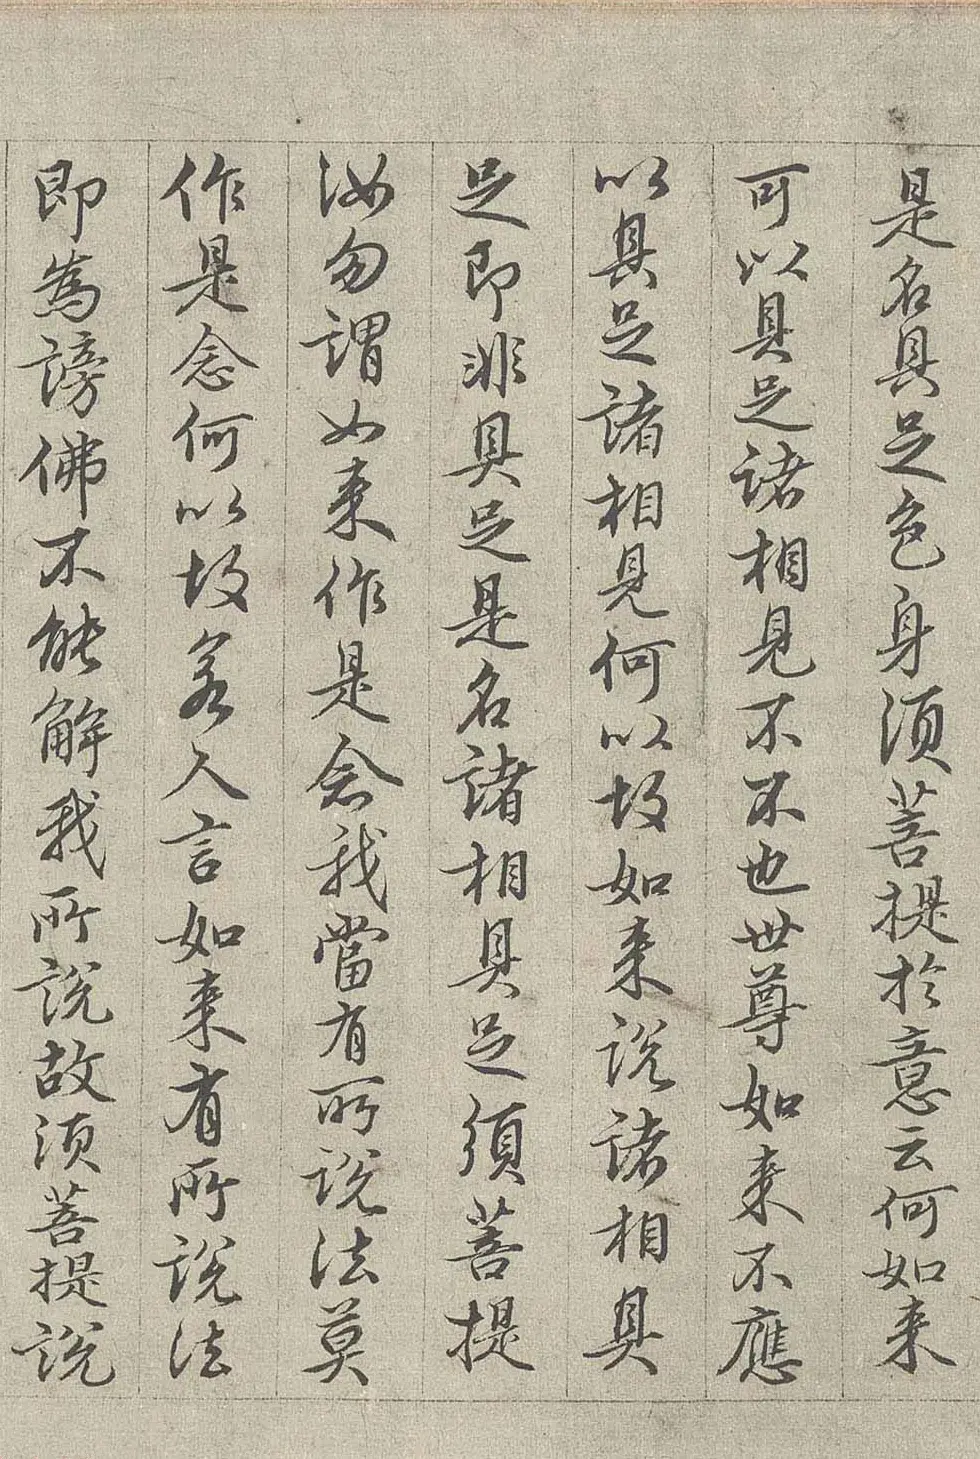 是名具足色身須菩提於意云何如来
可以具足諸相見不不也世尊如来不應
以具足諸相見何以故如来說諸相具
足即非具足是名諸相具足須菩提
汝勿謂如来作是念我當有所說法莫
作是念何以故若人言如来有所說法
即為謗佛不能解我所說故須菩提說